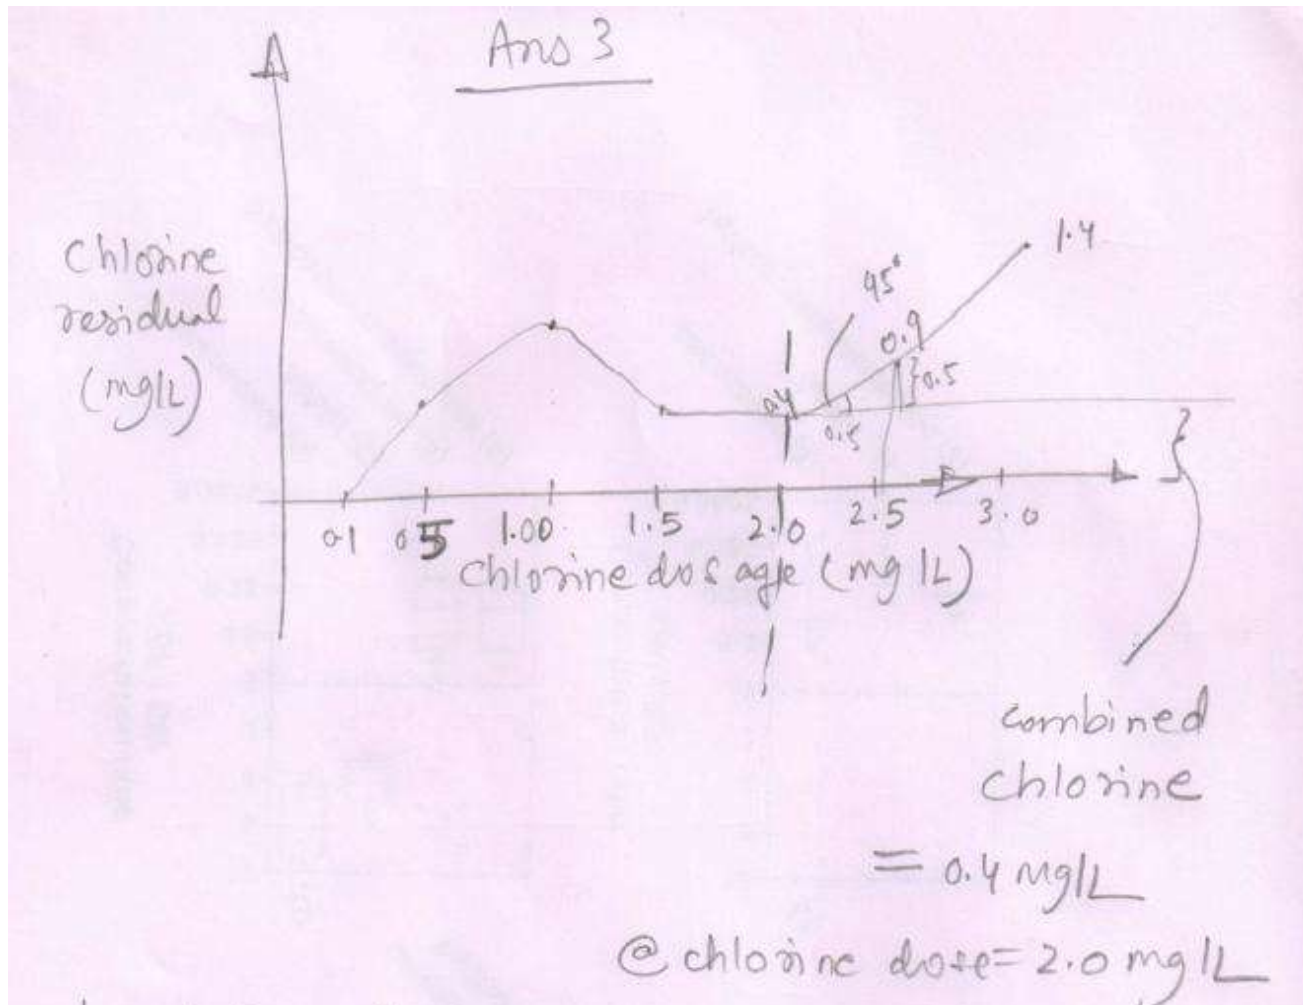 Ans 3
Chlorine
residual
(mg/L)
1.4
95°
0.9
0.5
0.4
0.5
0.1 0.5 1.00 1.5 2.0 2.5 3.0
Chlorine dosage (mg/L)
combined
chlorine
= 0.4 mg/L
@ chlorine dose = 2.0 mg/L